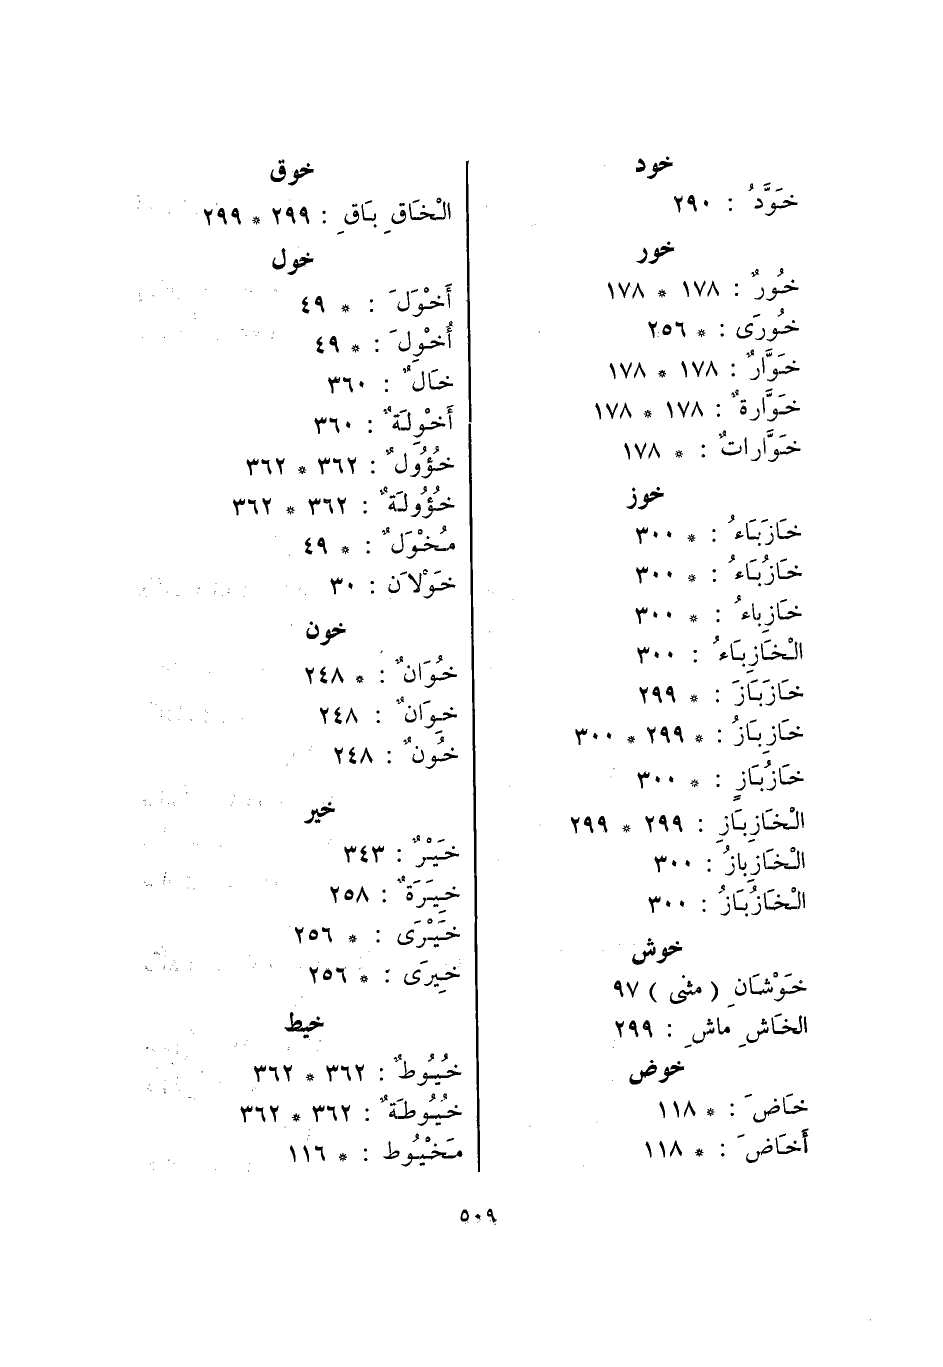 خود
خَوَّدُ : ٢٩٠
خور
خُورٌ : ١٧٨ * ١٧٨
خُورَى : * ٢٥٦
خَوَّارٌ : ١٧٨ * ١٧٨
خَوَّارةٌ : ١٧٨ * ١٧٨
خَوَّاراتٌ : * ١٧٨
خوز
خَازَبَاءُ : * ٣٠٠
خَازُبَاءُ : * ٣٠٠
خَازِباءُ : * ٣٠٠
الْخَازِبَاءُ : ٣٠٠
خَازَبَازَ : * ٢٩٩
خَازِبَازُ : * ٢٩٩ * ٣٠٠
خَازُبَازٍ : * ٣٠٠
الْخَازِبَازِ : ٢٩٩ * ٢٩٩
الْخَازِبازُ : ٣٠٠
الْخَازُبَازُ : ٣٠٠
خوش
خَوْشَانِ ( مثنى ) ٩٧
الخَاشِ ماشِ : ٢٩٩
خوض
خَاضَ : * ١١٨
أَخَاضَ : * ١١٨
خوق
الْخَاقِ بَاقِ : ٢٩٩ * ٢٩٩
خول
أَخْوَلَ : * ٤٩
أُخْوِلَ : * ٤٩
خَالٌ : ٣٦٠
أَخْوِلَةٌ : ٣٦٠
خُؤُولٌ : ٣٦٢ * ٣٦٢
خُؤُولَةٌ : ٣٦٢ * ٣٦٢
مُخْوَلٌ : * ٤٩
خَوْلاَن : ٣٠
خون
خُوَانٌ : * ٢٤٨
خِوَانٌ : ٢٤٨
خُونٌ : ٢٤٨
خير
خَيْرٌ : ٣٤٣
خِيَرَةٌ : ٢٥٨
خَيْرَى : * ٢٥٦
خِيرَى : * ٢٥٦
خيط
خُيُوطٌ : ٣٦٢ * ٣٦٢
خُيُوطَةٌ : ٣٦٢ * ٣٦٢
مَخْيُوط : * ١١٦
٥٠٩